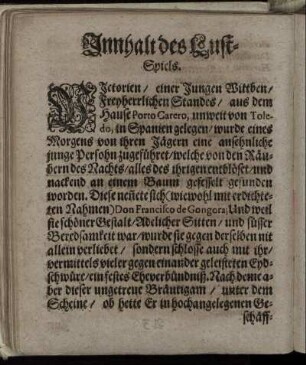 Innhalt des Lust-
Spiels.
VIctorien / einer Jungen Wittben /
Freyherrlichen Standes / aus dem
Hause Porto Carero, unweit von Tole-
do, in Spanien gelegen / wurde eines
Morgens von ihren Jägern eine ansehnliche
junge Persohn zugeführet / welche von den Räu-
bern des Nachts / alles des ihrigen entblöset / und
nackend an einem Baum gefesselt gefunden
worden. Diese neñete sich (wiewohl mit erdichte-
ten Nahmen) Don Francisco de Gongora; Und weil
sie schöner Gestalt / Adlicher Sitten / und süsser
Beredsamkeit war / wurde sie gegen derselben nit
allein verliebet / sondern schlosse auch mit ihr /
vermittels vieler gegen einander geleisteten Eyd-
schwüre / ein festes Eheverbündniß. Nach deme a-
ber dieser ungetreue Bräutigam / unter dem
Scheine / ob hette Er in hochangelegenen Ge-
schäff-